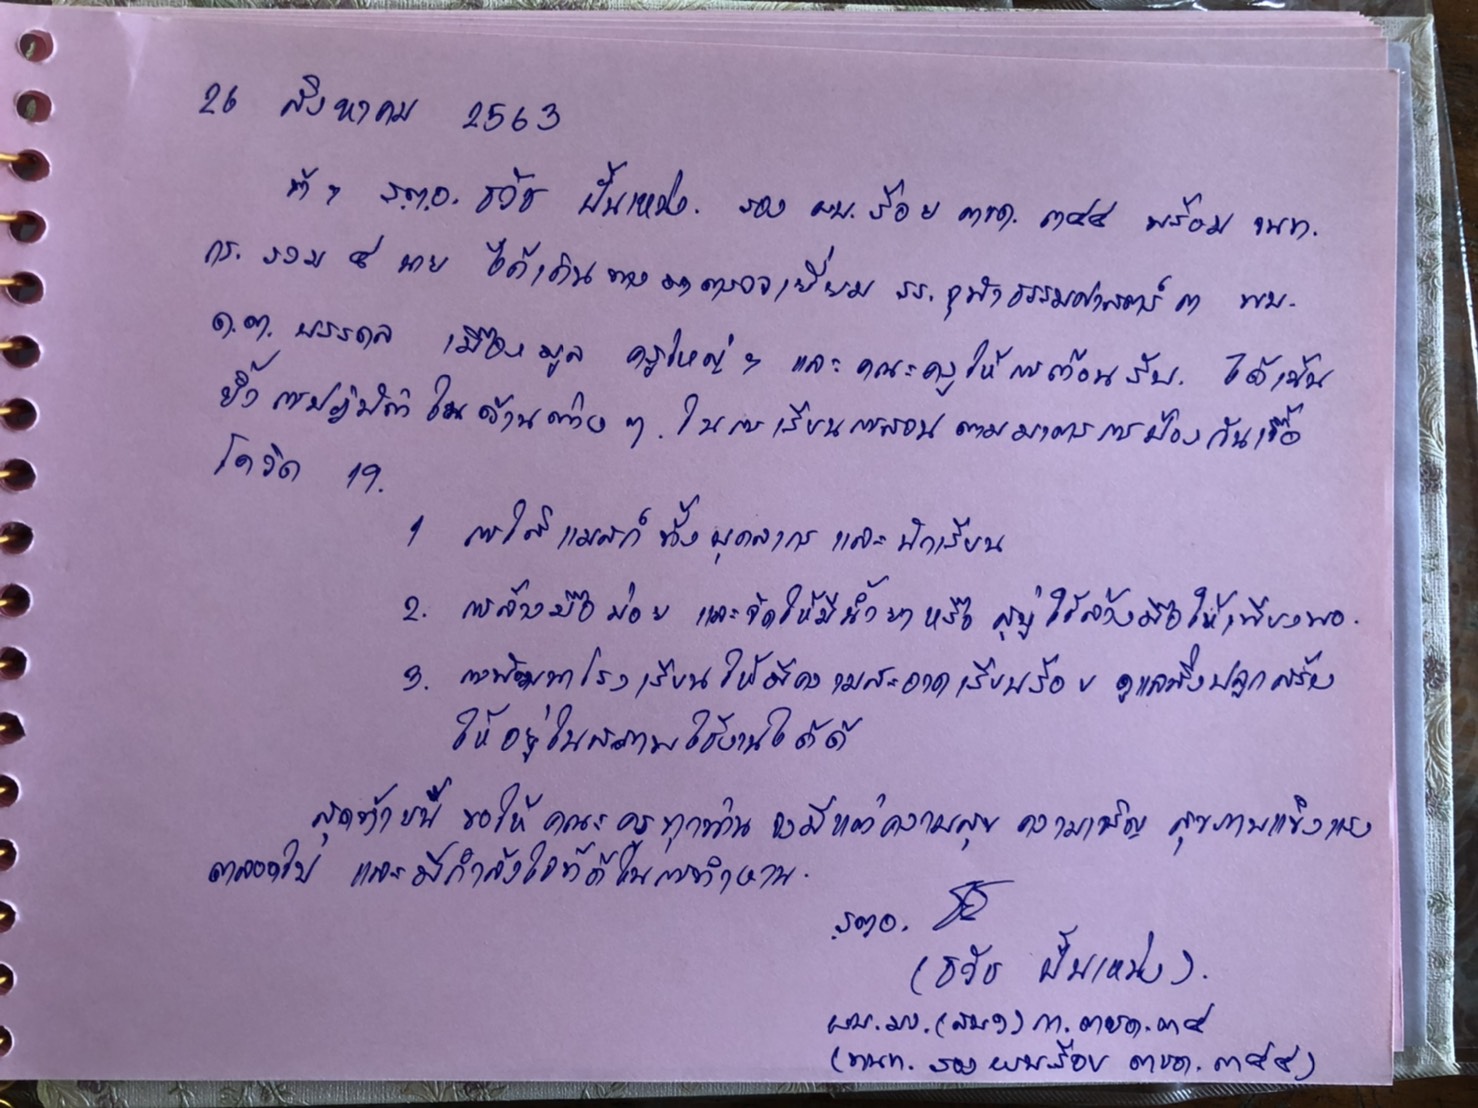 26 สิงหาคม 2563
ข้าฯ ร.ต.อ. ธวัช ปั้นเหน่ง. รอง ผบ.ร้อย ตชด. ๓๔๔ พร้อม จนท.
ตร. รวม ๔ นาย ได้เดินทางมาตรวจเยี่ยม รร. จุฬาธรรมศาสตร์ ๓ พบ.
ด.ต. บรรดล เมืองมูล ครูใหญ่ฯ และคณะครูให้การต้อนรับ. ได้เน้น
ย้ำการปฏิบัติในด้านต่าง ๆ. ในการเรียนการสอนตามมาตรการป้องกันเชื้อ
โควิด 19.
1 การใส่แมสก์ ทั้งบุคลากร และนักเรียน
2. การล้างมือบ่อย และจัดให้มีน้ำยาหรือ สบู่ ใช้ล้างมือให้เพียงพอ.
3. การพัฒนาโรงเรียนให้มีความสะอาดเรียบร้อย ดูแลสิ่งปลูกสร้าง
ให้อยู่ในสภาพใช้งานได้ดี
สุดท้ายนี้ ขอให้ คณะครูทุกท่าน จงมีแต่ความสุข ความเจริญ สุขภาพแข็งแรง
ตลอดไป และมีกำลังใจที่ดีในการทำงาน.
ร.ต.อ.
(ธวัช ปั้นเหน่ง).
ผบ.มว.(สบ๑) ก. ตชด.๓๔
(ทนท. รอง ผบ.ร้อย ตชด. ๓๔๔)